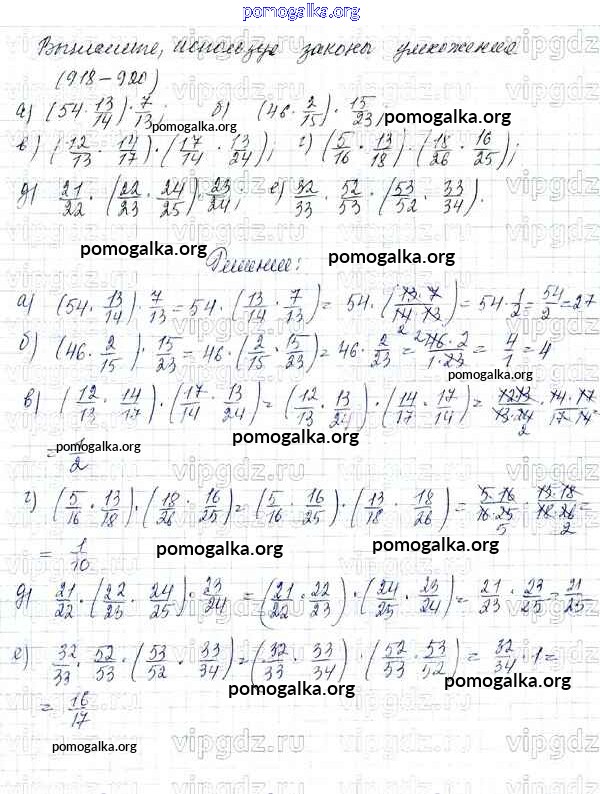 pomogalka.org
Вычислите, используя законы умножения
(918-920)
а) (54 · 13/14) · 7/13; б) (46 · 2/15) · 15/23;
pomogalka.org
в) (12/13 · 14/17) · (17/14 · 13/24); г) (5/16 · 13/18) · (18/26 · 16/25);
д) 21/22 · (22/23 · 24/25) · 23/24; е) 32/33 · 52/53 · (53/52 · 33/34).
pomogalka.org
pomogalka.org
Решение:
а) (54 · 13/14) · 7/13 = 54 · (13/14 · 7/13) = 54 · (13·7/14·13) = 54 · 1/2 = 54/2 = 27
б) (46 · 2/15) · 15/23 = 46 · (2/15 · 15/23) = 46 · 2/23 = 46·2/1·23 = 4/1 = 4
pomogalka.org
в) (12/13 · 14/17) · (17/14 · 13/24) = (12/13 · 13/24) · (14/17 · 17/14) = 12·13/13·24 · 14·17/17·14
= 1/2
pomogalka.org
pomogalka.org
г) (5/16 · 13/18) · (18/26 · 16/25) = (5/16 · 16/25) · (13/18 · 18/26) = 5·16/16·25 · 13·18/18·26 =
= 1/10
pomogalka.org
pomogalka.org
д) 21/22 · (22/23 · 24/25) · 23/24 = (21/22 · 22/23) · (24/25 · 23/24) = 21/23 · 23/25 = 21/25
pomogalka.org
е) 32/33 · 52/53 · (53/52 · 33/34) = (32/33 · 33/34) · (52/53 · 53/52) = 32/34 · 1 =
= 16/17
pomogalka.org
pomogalka.org
pomogalka.org
vipgdz.ru